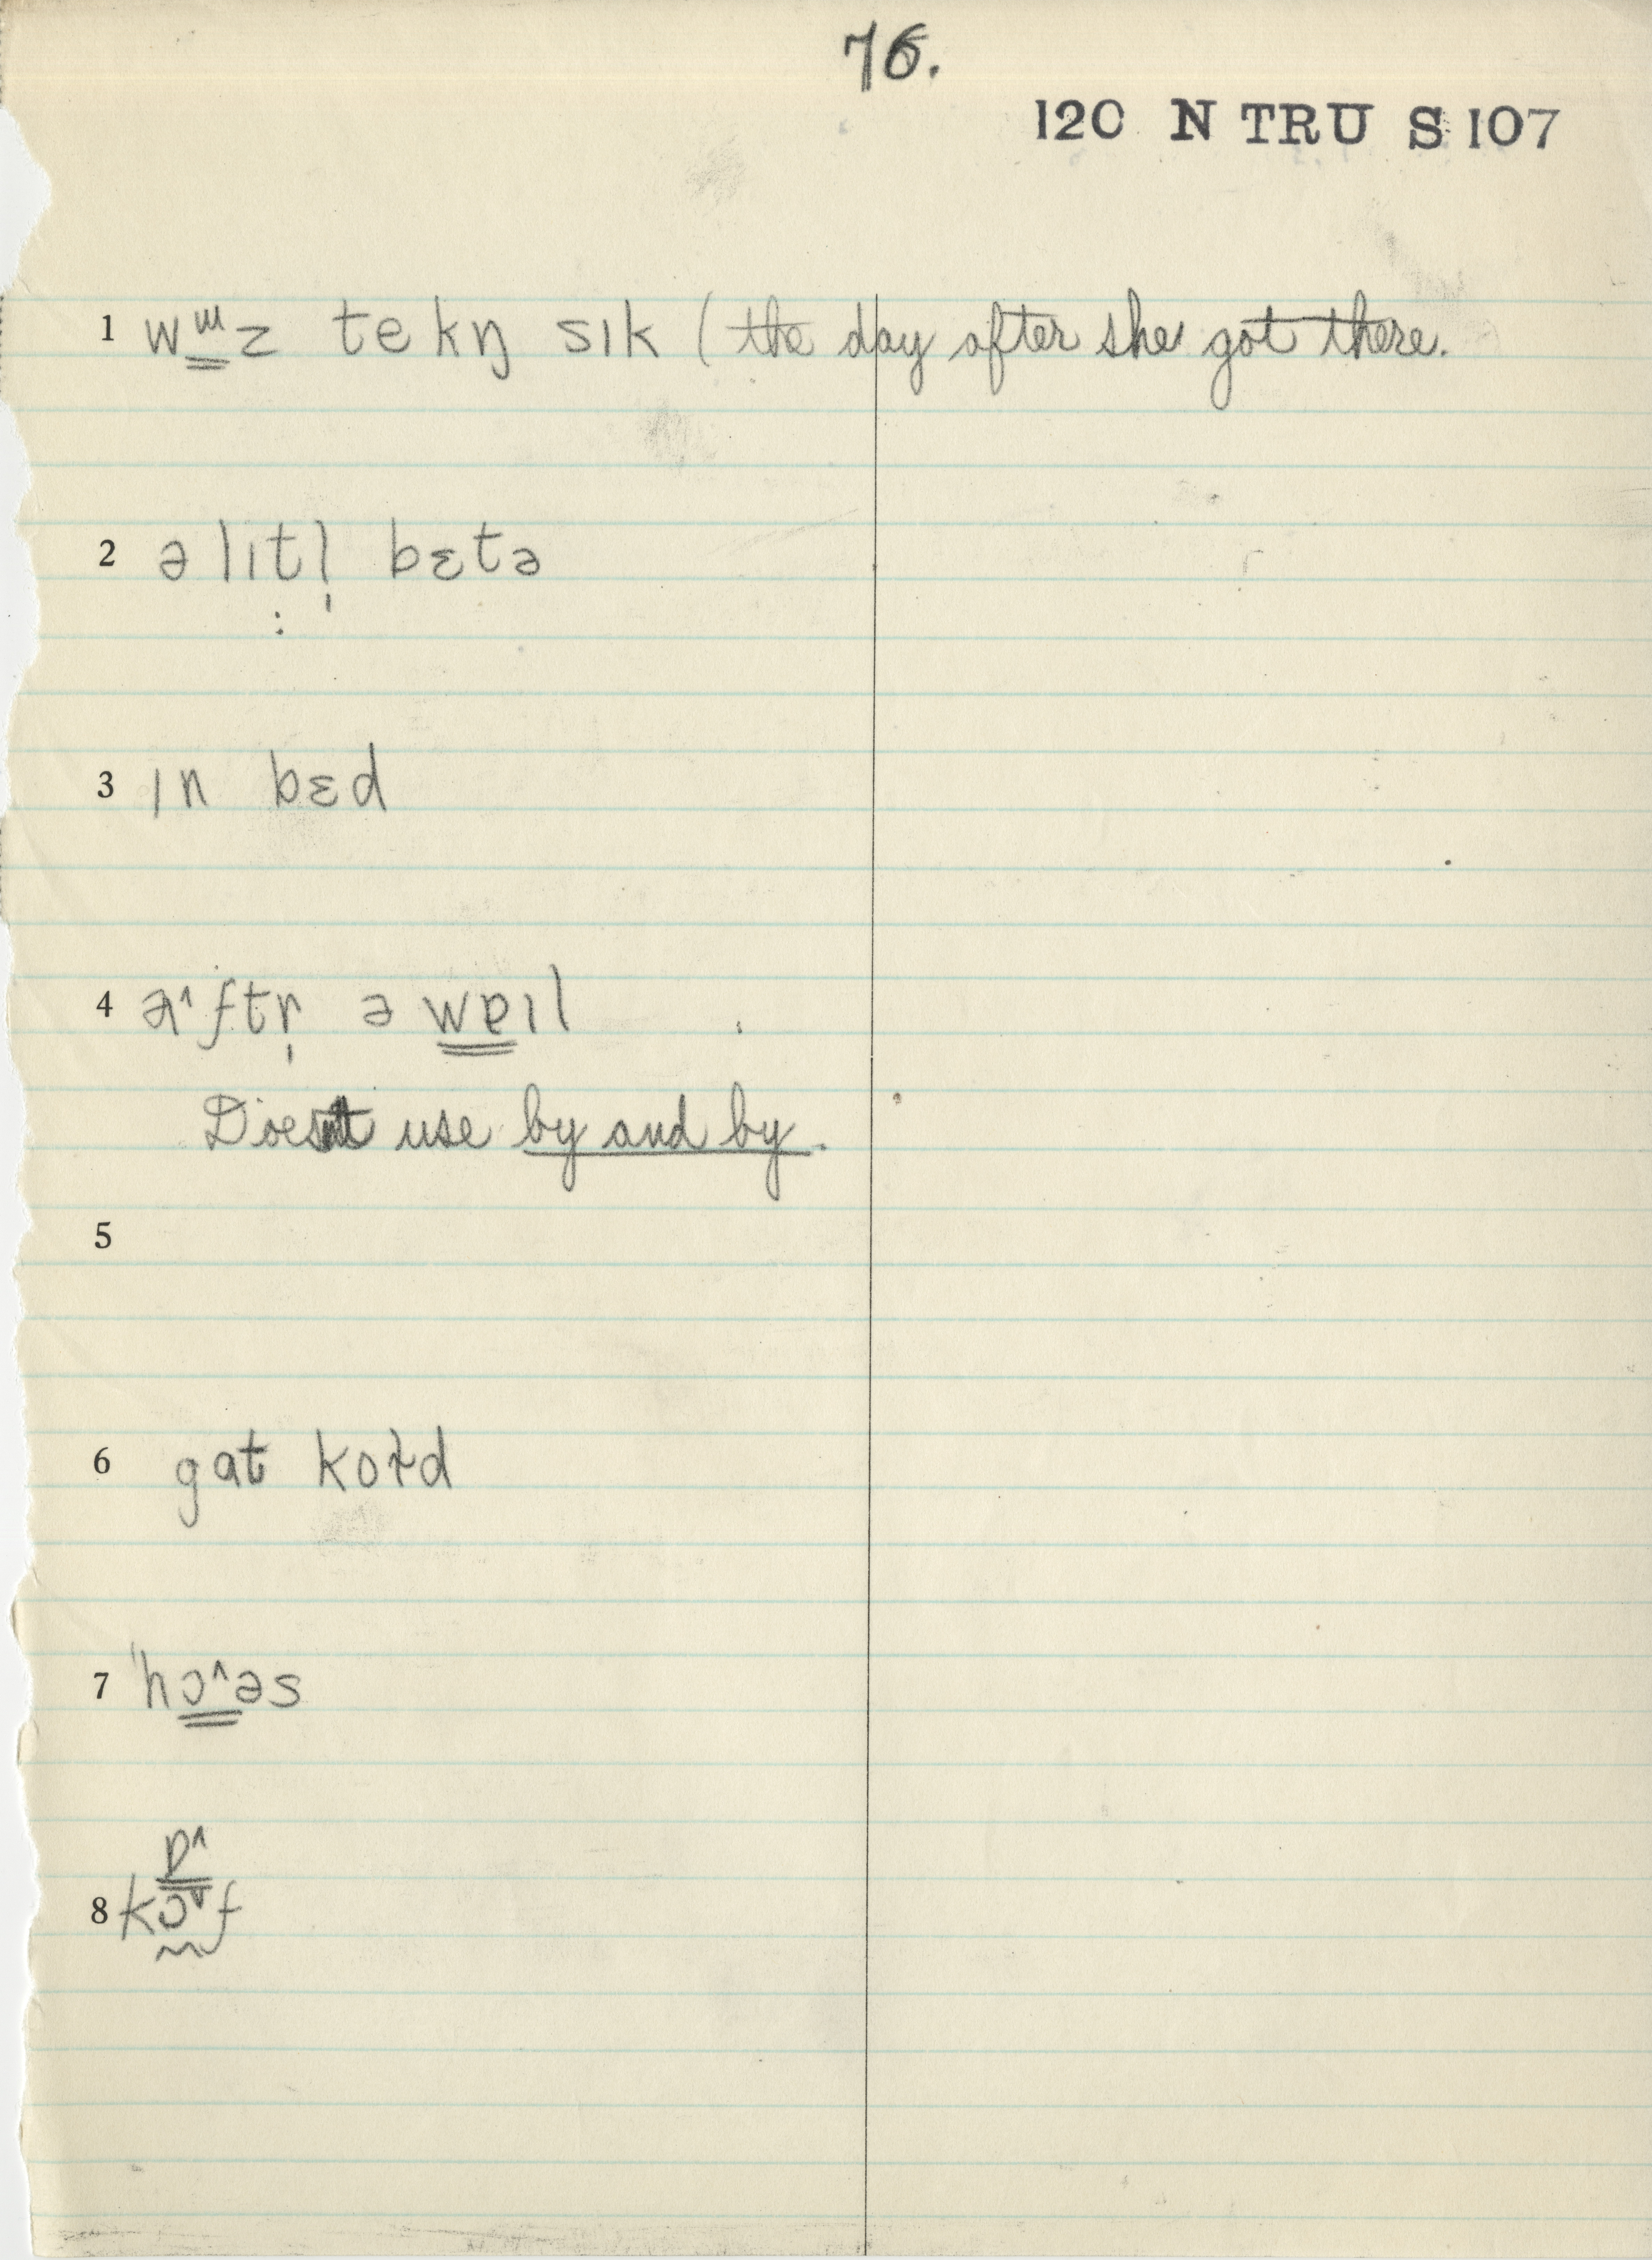 76.
120 N TRU S 107
1 wɯz tekŋ sɪk (the day after she got there.
2 ə lɪtl̩ bɛtə
3 ɪn bɛd
4 æ^ftr̩ ə wɐɪl
Doesn't use by and by.
5
6 gat koɫd
7 'hɔ^əs
ɒ^
8 kɔ˅f